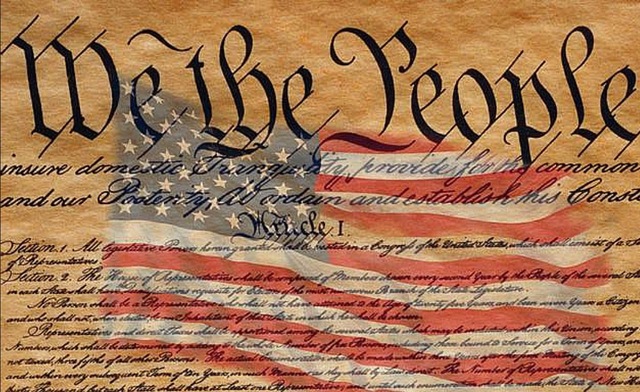 We the People
insure domestic Tranquility, provide for the common
and our Posterity, do ordain and establish this Cons
Article I.
Section 1. All legislative Powers herein granted shall be vested in a Congress of the United States, which shall consist of a
of Representatives
Section 2. The House of Representatives shall be composed of Members chosen every second Year by the People of the several
in each State shall have the Qualifications requisite for Electors of the most numerous Branch of the State Legislature.
No Person shall be a Representative who shall not have attained to the Age of twenty five Years, and been seven Years a Citizen
and who shall not, when elected, be an Inhabitant of that State in which he shall be chosen.
Representatives and direct Taxes shall be apportioned among the several States which may be included within this Union, according
Numbers, which shall be determined by adding to the whole Number of free Persons, including those bound to Service for a Term of Years,
not taxed, three fifths of all other Persons. The actual Enumeration shall be made within three Years after the first Meeting of the Congress
and within every subsequent Term of ten Years, in such Manner as they shall by Law direct. The Number of Representatives shall not
but each State shall have at Least one Representative; and until such enumeration shall be made, the State of